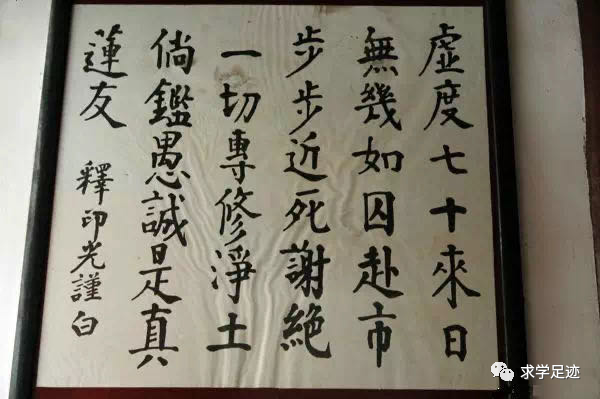 虛度七十來日
無幾如囚赴市
步步近死謝絕
一切專修淨土
倘鑑愚誠是真
蓮友 釋印光謹白
求学足迹